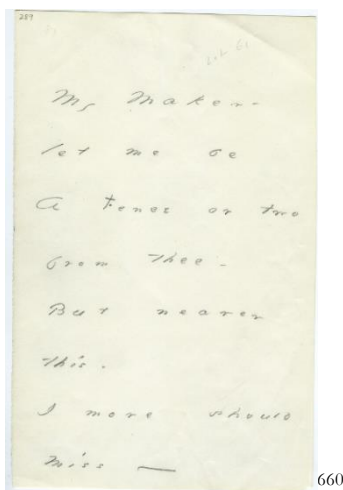 289
My Maker -
let me be
A Fence or two
from Thee -
But nearer
this -
I more should
Miss —
660